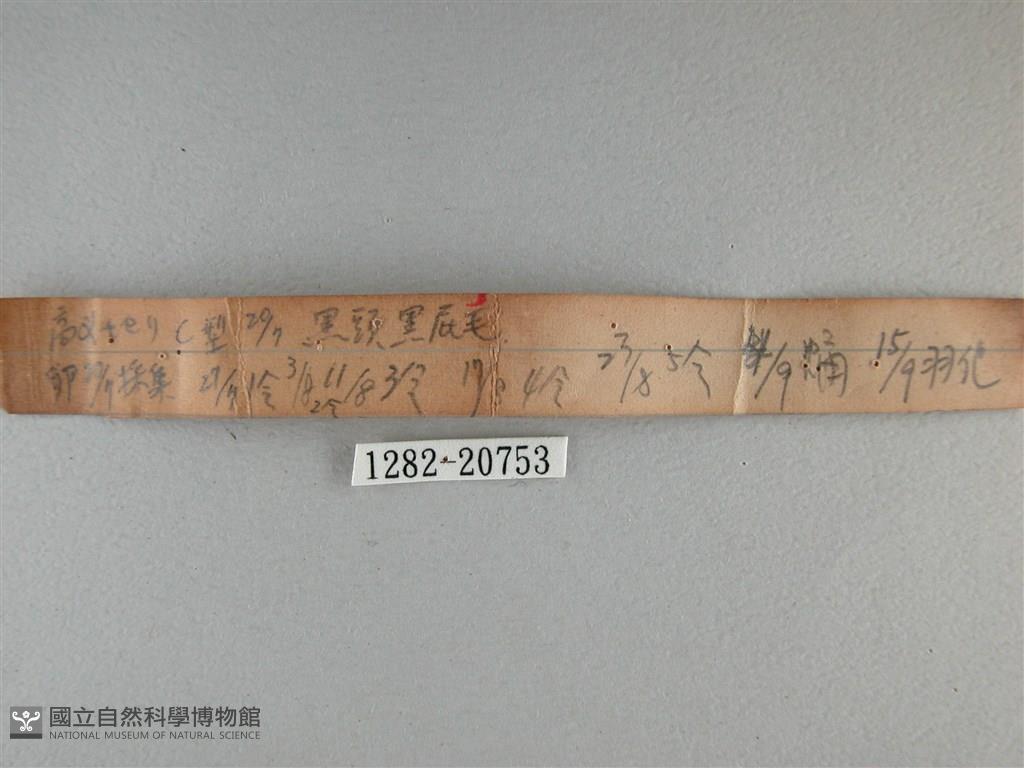 C型 29/7 黑頭黑屁毛
卵 27/7 採集 29/7 1令 3/8 2令 11/8 3令 17/8 4令 23/8 5令 /9 蛹 15/9 羽化
1282-20753
國立自然科學博物館
NATIONAL MUSEUM OF NATURAL SCIENCE